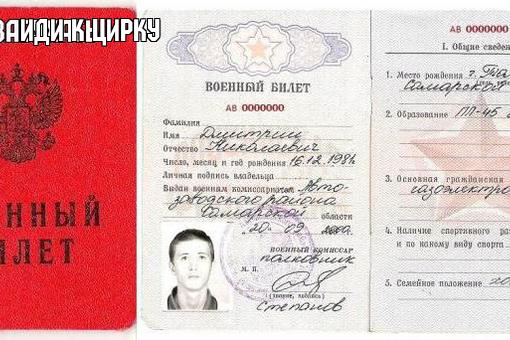 ЕННЫЙ
ИЛЕТ
ВОЕННЫЙ БИЛЕТ
АВ 0000000
Фамилия
Имя Дмитрий
Отчество Николаевич
Число, месяц и год рождения 16.12.198
Личная подпись владельца
Выдан военным комиссариатом Авто-
заводского района
Самарской области
20 09
ВОЕННЫЙ КОМИССАР
полковник
М. П.
(звание, подпись)
Степанов
АВ 0000000
I. Общие сведе
1. Место рождения г.
Самарской
2. Образование ПП-45
3. Основная гражданская
газоэлектро
4. Наличие спортивного раз
и по какому виду спорта
5. Семейное положение